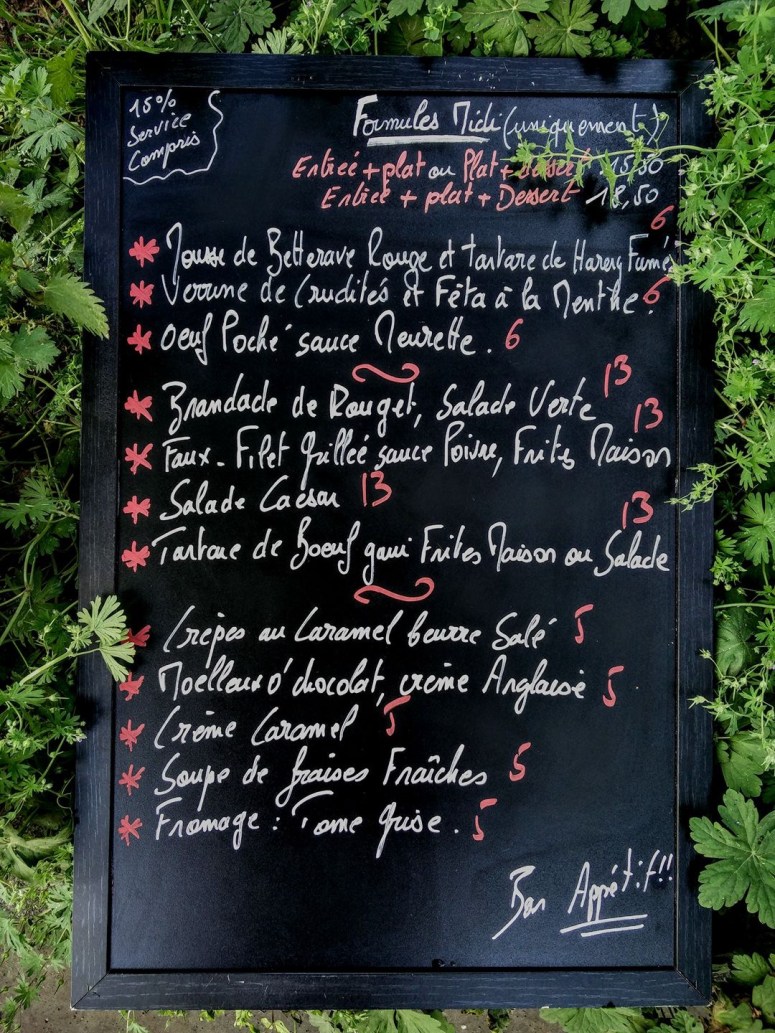 15%
Service
Compris
Formules Midi (uniquement)
Entrée + plat ou Plat + dessert 15,50
Entrée + plat + Dessert 18,50
6
* Mousse de Betterave Rouge et tartare de Hareng Fumé
* Verrine de Crudités et Fêta à la Menthe. 6
* Oeuf Poché sauce Meurette. 6
13
* Brandade de Rouget, Salade Verte
13
* Faux-Filet Grilleé sauce Poivre, Frites Maison
* Salade Caesar 13
13
* Tartare de Boeuf garni Frites Maison ou Salade
* Crèpes au Caramel beurre Salé 5
* Moelleux o'chocolat, crème Anglaise 5
* Crème Caramel 5
* Soupe de fraises Fraîches 5
* Fromage : Tome Grise. 5
Bon Appétif!!